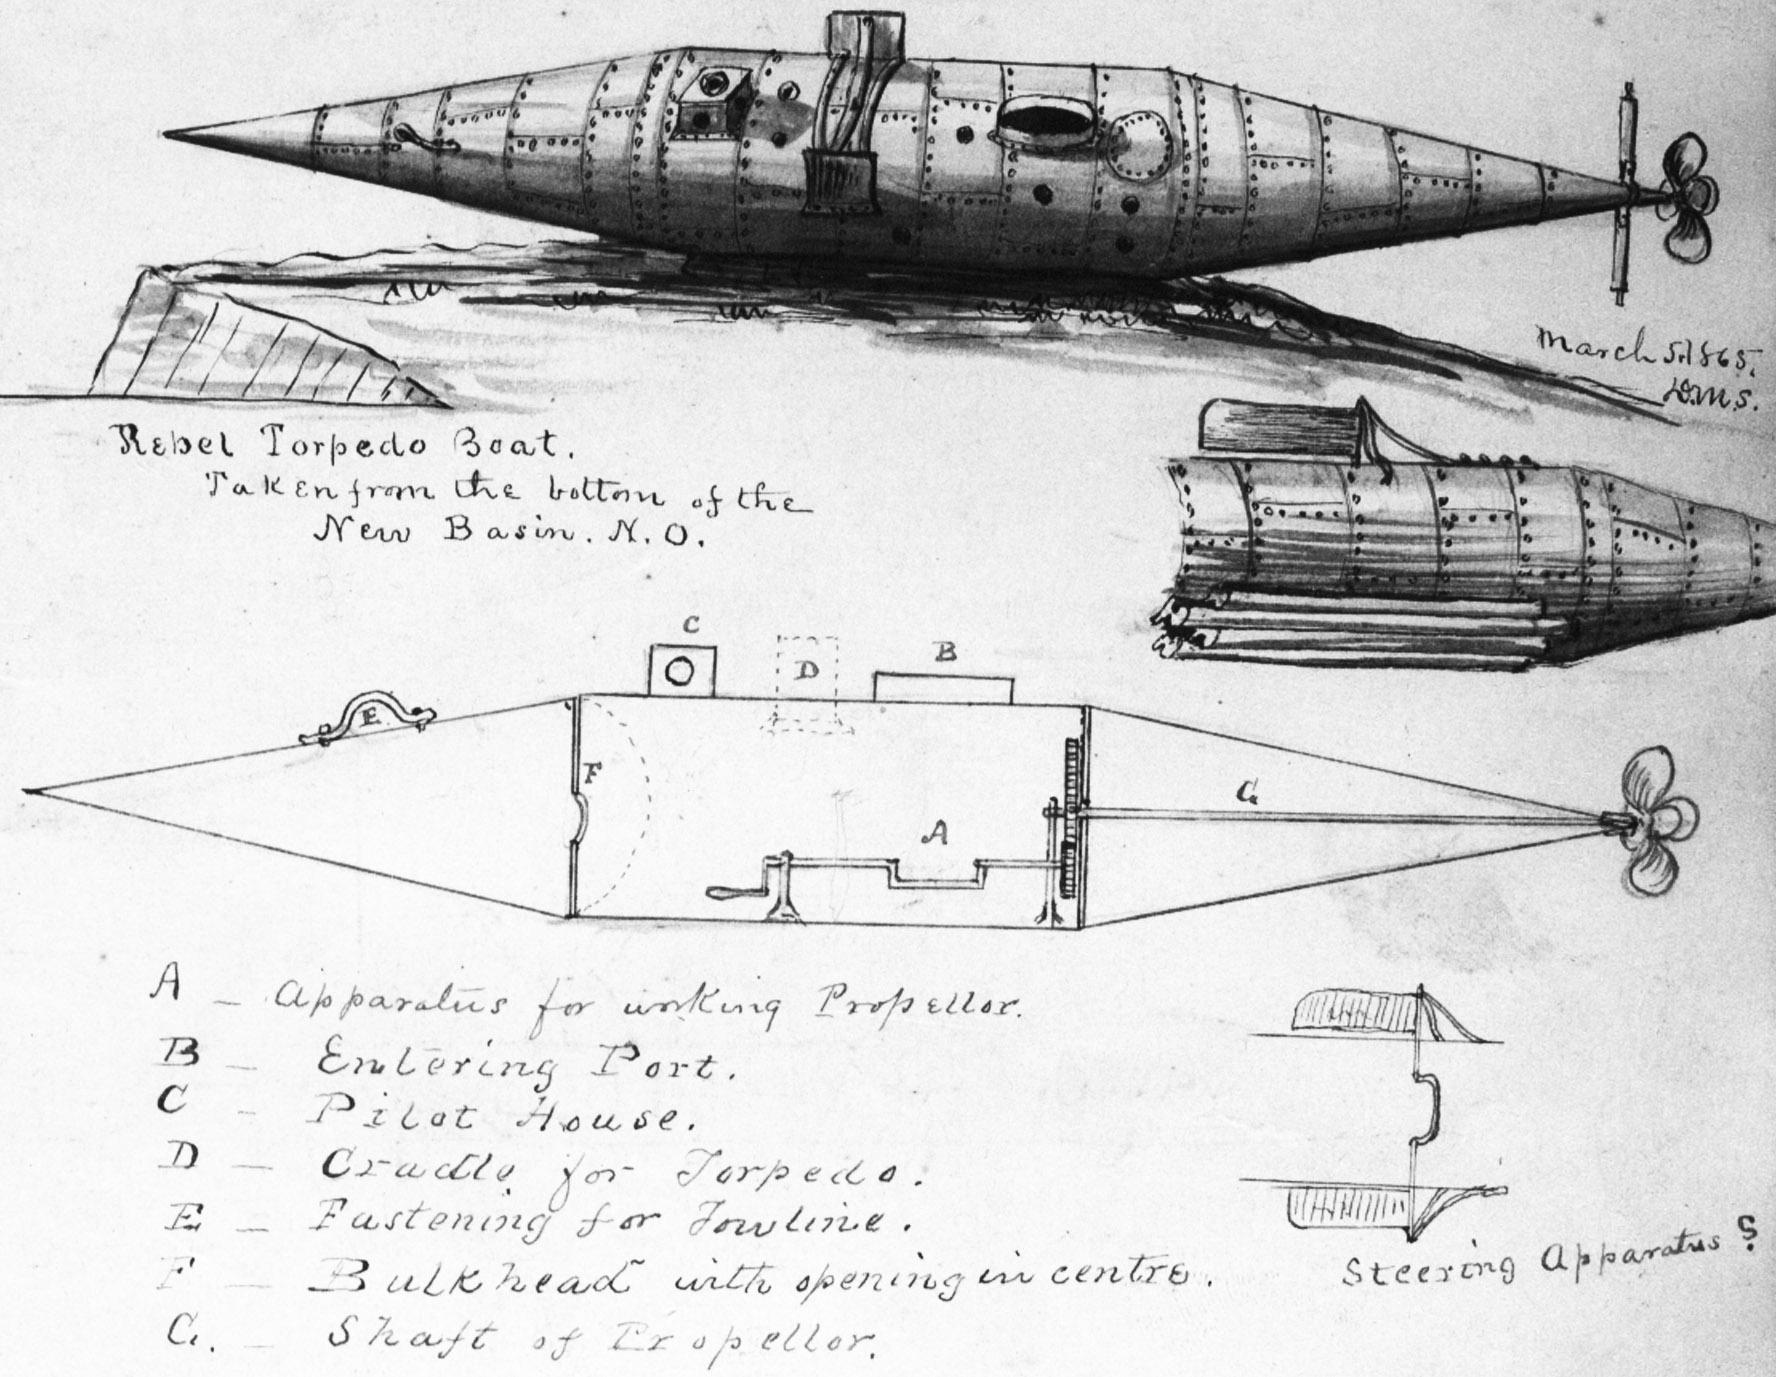 March 5. 1865.
D.M.S.
Rebel Torpedo Boat.
Taken from the bottom of the
New Basin. N.O.
C
D
B
E
F
G
A
A – Apparatus for working Propellor.
B – Entering Port.
C – Pilot House.
D – Cradle for Torpedo.
E – Fastening for Towline.
F – Bulkhead with opening in centre.
G. – Shaft of Propellor.
Steering Apparatus ?